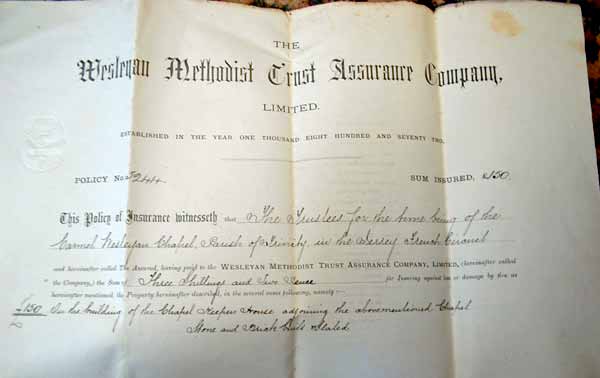 THE
Wesleyan Methodist Trust Assurance Company,
LIMITED.
ESTABLISHED IN THE YEAR ONE THOUSAND EIGHT HUNDRED AND SEVENTY TWO.
POLICY No. 5244 SUM INSURED, £150.
This Policy of Insurance witnesseth that The Trustees for the time being of the
Carmel Wesleyan Chapel, Parish of Trinity, in the Jersey French Circuit
and hereinafter called The Assured, having paid to the WESLEYAN METHODIST TRUST ASSURANCE COMPANY, LIMITED, (hereinafter called
the Company,) the Sum of Three Shillings and Two Pence for Insuring against loss or damage by fire as
hereinafter mentioned, the Property hereinafter described, in the several sums following, namely:—
£150 On the building of the Chapel Keepers House adjoining the abovementioned Chapel
Stone and Brick built & Slated